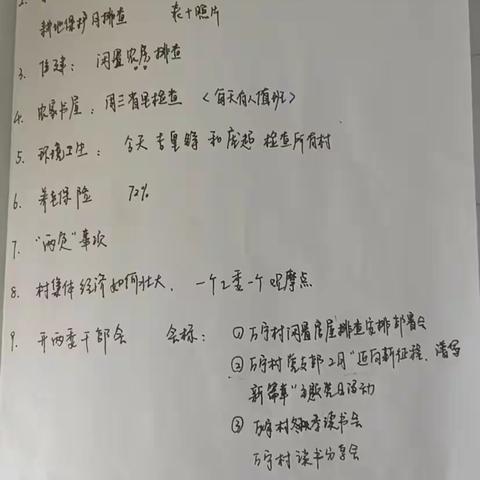 耕地保护月排查 表+照片
3. 住建： 闲置农房排查
4. 农家书屋：周三省里检查 〈每天有人值班〉
5. 环境卫生： 今天 和 检查所有村
6. 养老保险 72%
7. “两负”事项
8. 村集体经济如何壮大， 一个工委一个观摩点
9. 开两委干部会 会标： ①万字村闲置房屋排查安排部署会
②万字村党支部2月“迈向新征程、谱写
新篇章”主题党日活动
③万字村冬季读书会
万字村读书分享会